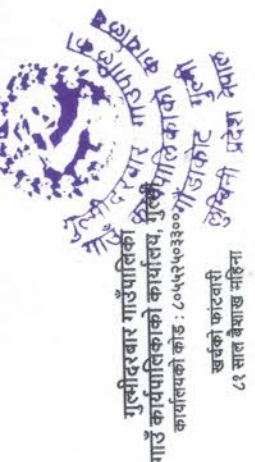 गुल्मीदरबार गाउँपालिका
गाउँ कार्यपालिकाको कार्यालय, गुल्मी
कार्यालयको कोड : ८०५५२५०३३००
खर्चको फांटवारी
८१ साल बैशाख महिना
गुल्मीदरबार गाउँपालिका
गाउँ कार्यपालिकाको कार्यालय
गौंडाकोट गुल्मी
लुम्बिनी प्रदेश नेपाल